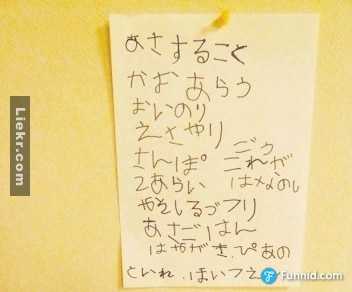 あさすること
かおあらう
おいのり
えさやり
さんぽ ごう
てあらい これが
はなのし
やさしるづフリ
あさごはん
はやがき、ぴあの
といれ、ほいつえ
Liekr.com
Funnid.com